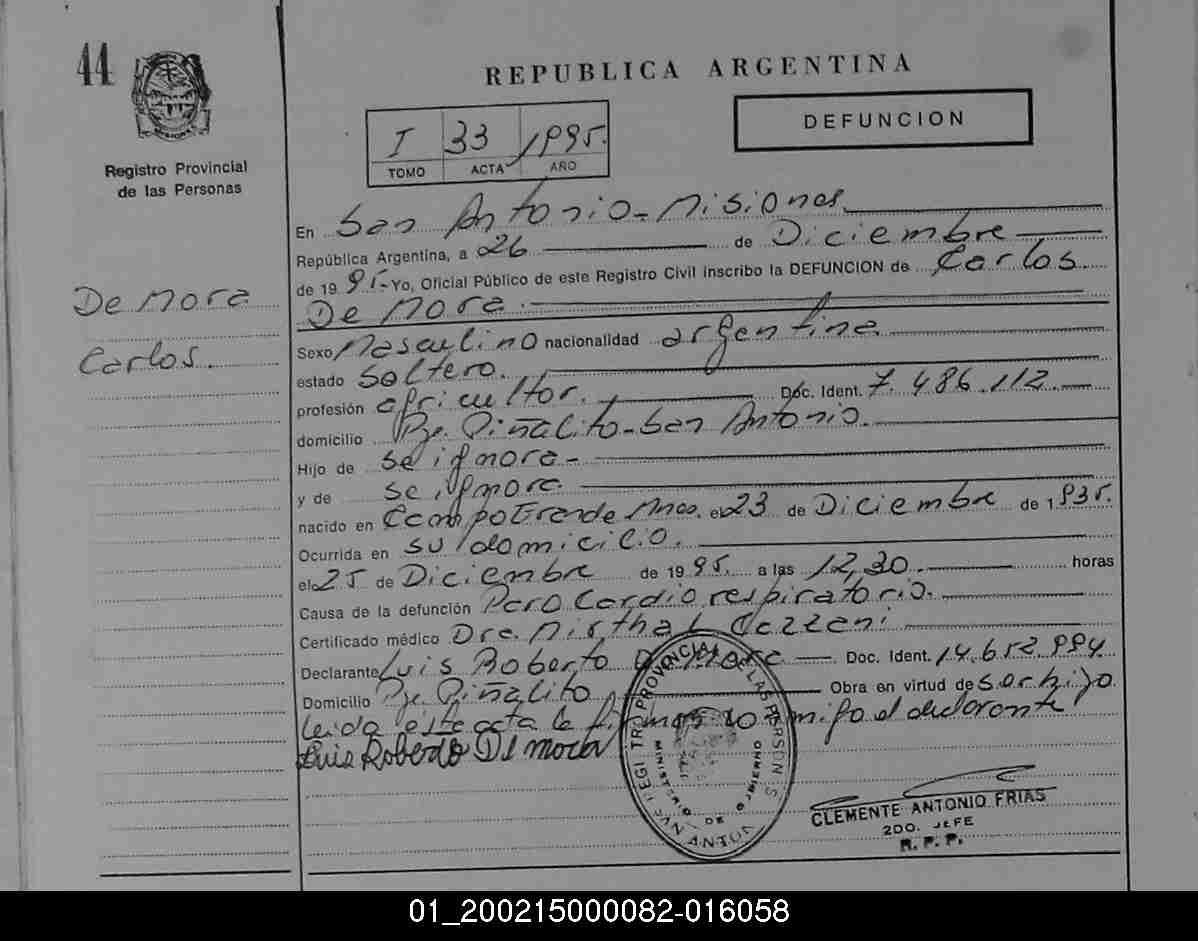 44
REPUBLICA ARGENTINA
DEFUNCION
I 33 1995.
TOMO ACTA AÑO
Registro Provincial
de las Personas
De Mora
Carlos.
En San Antonio - Misiones
República Argentina, a 26 de Diciembre
de 1995.- Yo, Oficial Público de este Registro Civil inscribo la DEFUNCION de Carlos
De Mora.
Sexo Masculino nacionalidad argentina
estado Soltero.
profesión agricultor. Doc. Ident. 7.486.112
domicilio Pje. Piñalito - San Antonio.
Hijo de se ignora -
y de se ignora.
nacido en Campo Grande Mnes. el 23 de Diciembre de 1935.
Ocurrida en su domicilio.
el 25 de Diciembre de 1995. a las 12,30 horas
Causa de la defunción Paro Cardio respiratorio.
Certificado médico Dra. Mirtha L Cazzani
Declarante Luis Roberto De Mora Doc. Ident. 14.652.994
Domicilio Pje. Piñalito Obra en virtud de ser hijo
Leida este acta la firma conmigo el declarante
Luis Roberto De mora
REGISTRO PROVINCIAL DE LAS PERSONAS
MINISTERIO DE GOBIERNO
SAN ANTON
CLEMENTE ANTONIO FRIAS
2DO. JEFE
R. P. P.
01_200215000082-016058